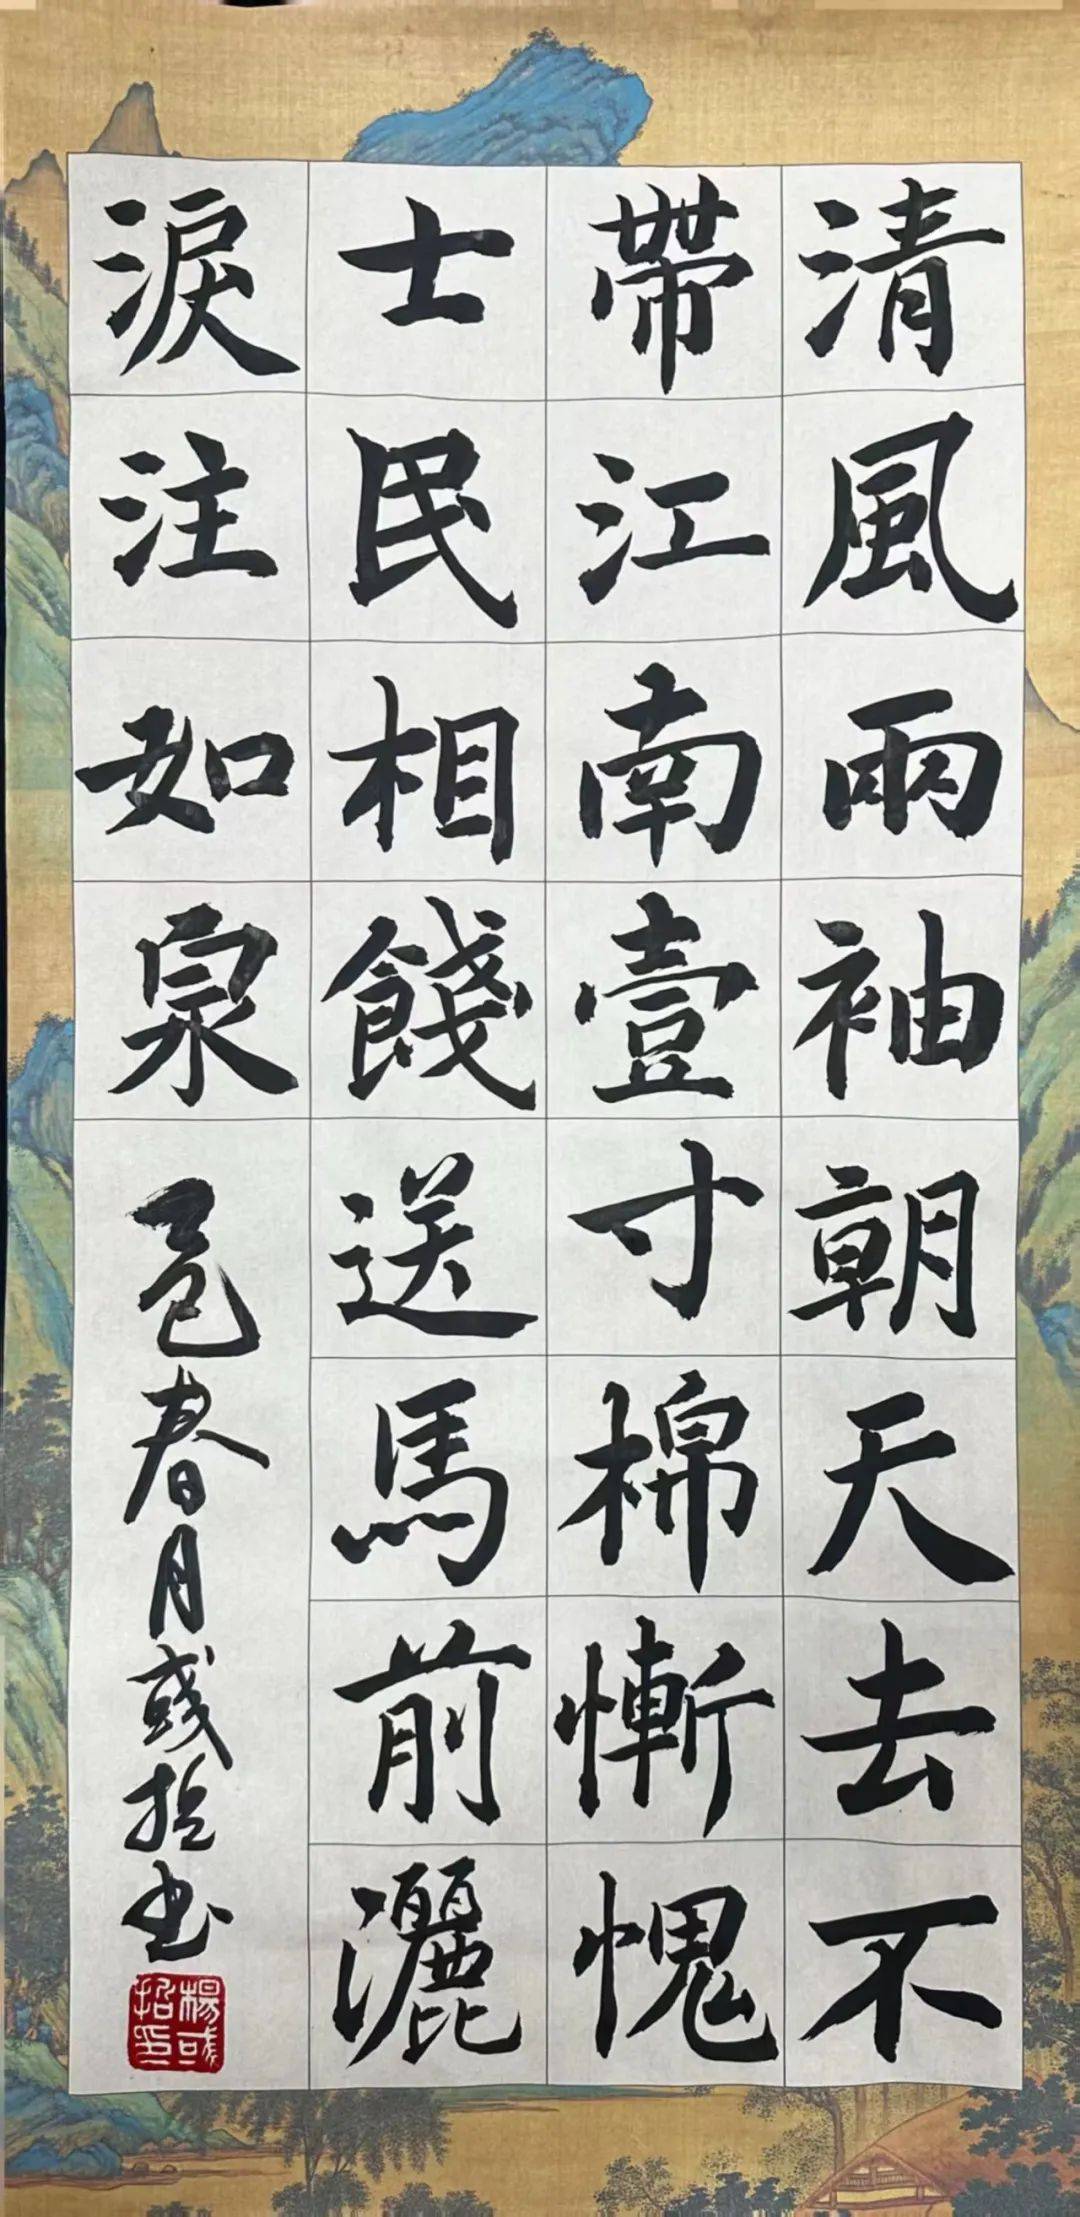 清風兩袖朝天去不
帶江南壹寸棉慚愧
士民相餞送馬前灑
淚注如泉
乙巳春月彧招书
楊彧招印